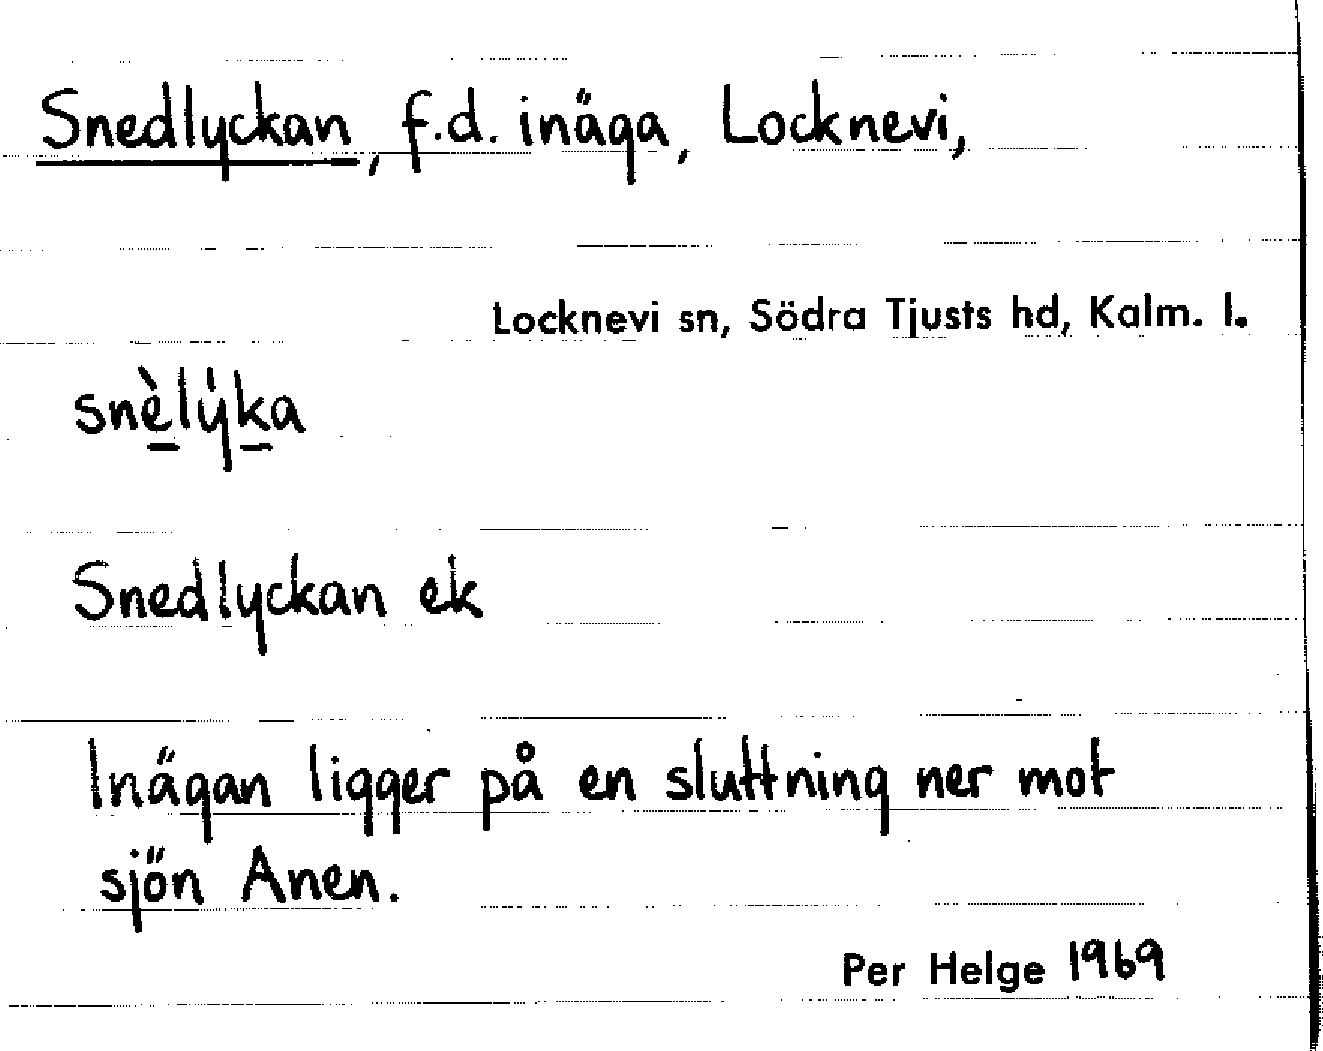 Snedlyckan, f.d. inäga, Locknevi,
Locknevi sn, Södra Tjusts hd, Kalm. l.
snè̱lẏḵa
Snedlyckan ek
Inägan ligger på en sluttning ner mot
sjön Anen.
Per Helge 1969